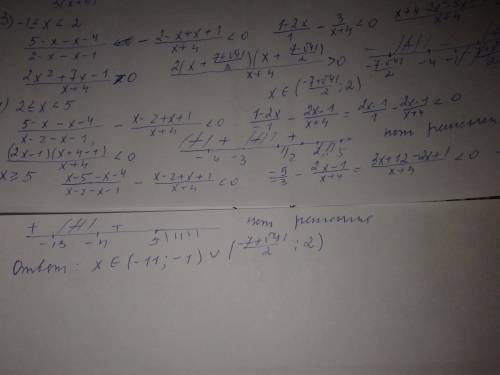 3) -1≤x<2
(5-x-x-4)/(2-x-x-1) - (2-x+x+1)/(x+4) <0   (1-2x)/1 - 3/(x+4) <0
(2x²+7x-1)/(x+4) >0   2(x+(7+√41)/2)(x+(7-√41)/2)/(x+4) >0   (-7-√41)/2 -4 -1
x∈((-7+√41)/2; 2)
2≤x<5
(5-x-x-4)/(x-2-x-1) - (x-2+x+1)/(x+4) <0   (1-2x)/ - (2x-1)/(x+4) = (2x-1)/1 - (2x-1)/(x+4) <0
(2x-1)(x+4-1)/(x+4) <0   + + -4 -3 1/2 2 5   нет решений
x≥5   (x-5-x-4)/(x-2-x-1) - (x-2+x+1)/(x+4) <0   = 9/3 - (2x-1)/(x+4) = (3x+12-2x+1)/(x+4) <0
+ + -13 -4 5   нет решение
Ответ: x∈(-11;-1)∪((-7+√41)/2; 2)